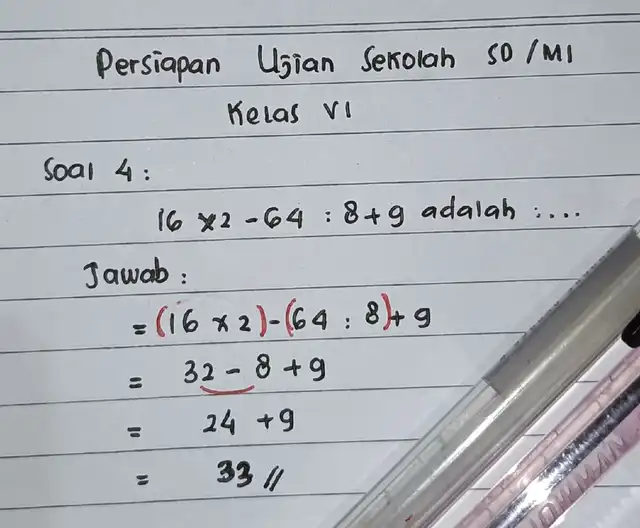 Persiapan Ujian Sekolah SD/MI
Kelas VI
Soal 4:
16 x 2 - 64 : 8 + 9 adalah :....
Jawab :
= (16 x 2) - (64 : 8) + 9
= 32 - 8 + 9
= 24 + 9
= 33 //